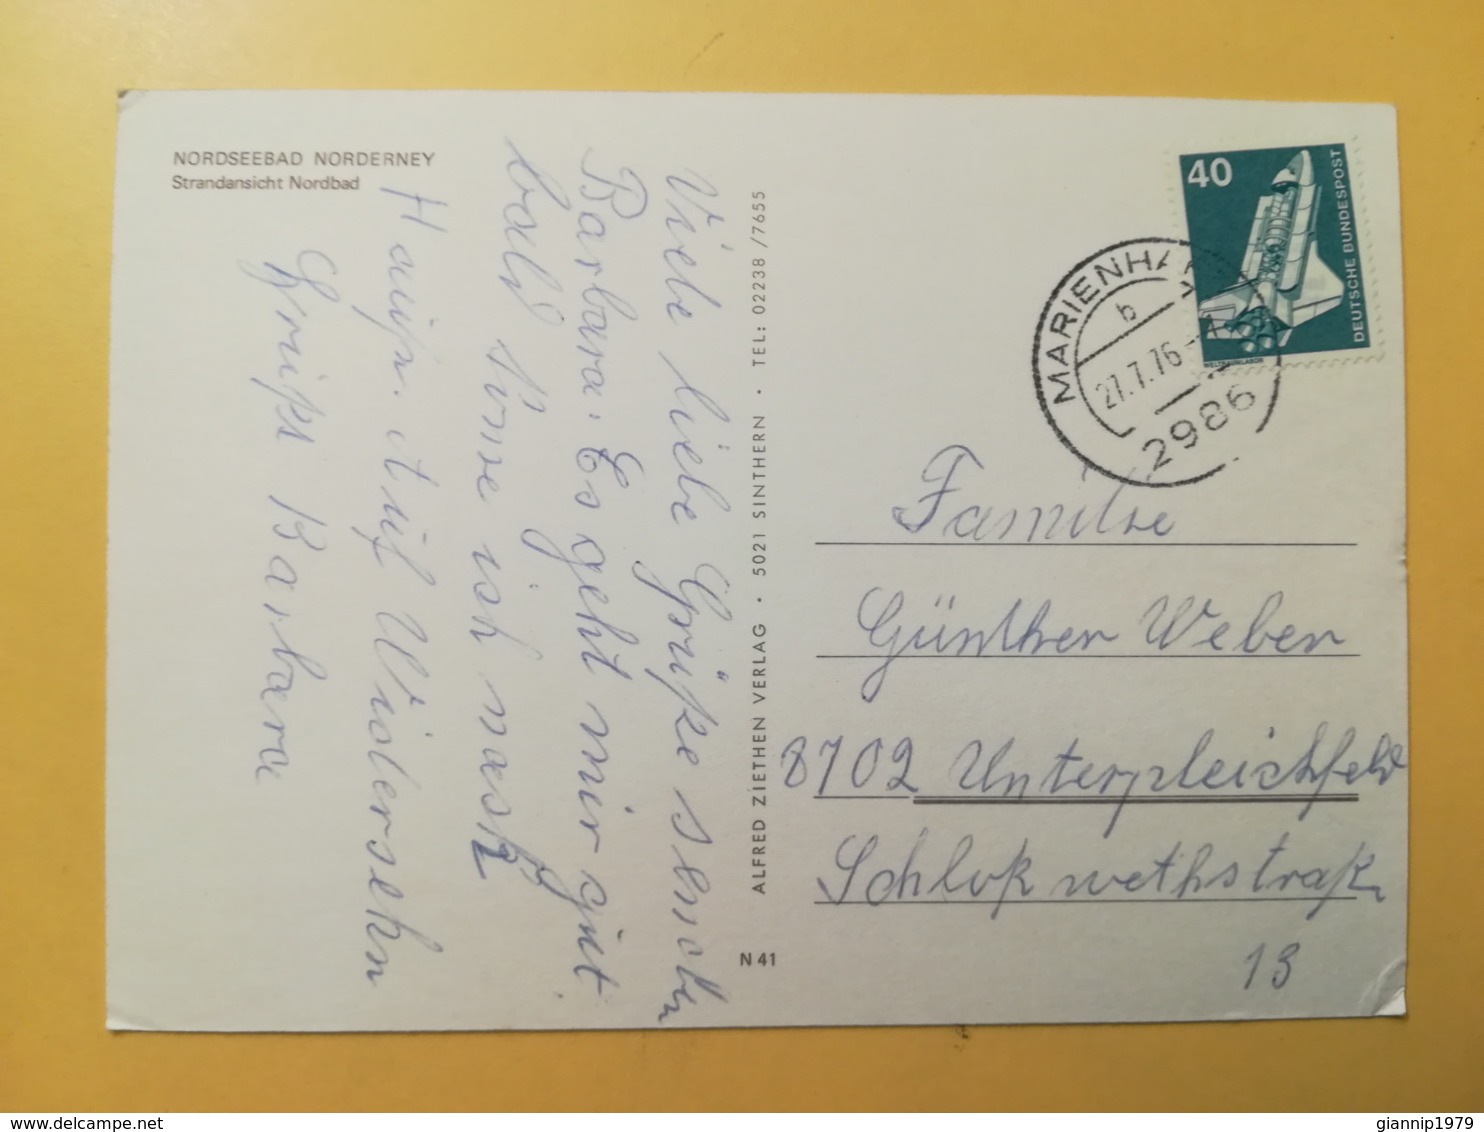 NORDSEEBAD NORDERNEY
Strandansicht Nordbad
Viele liebe Grüße senden
Barbara. Es geht mir gut
bald komme ich nach
Hause. Auf Widersehn
Gruß Barbara
ALFRED ZIETHEN VERLAG · 5021 SINTHERN · TEL: 02238 /7655
N 41
40
DEUTSCHE BUNDESPOST
WELTRAUMLABOR
MARIENHA
b
27.7.76
2986
Familie
Günther Weber
8702 Unterpleichfeld
Schloß wethstraße
13
www.delcampe.net
giannip1979